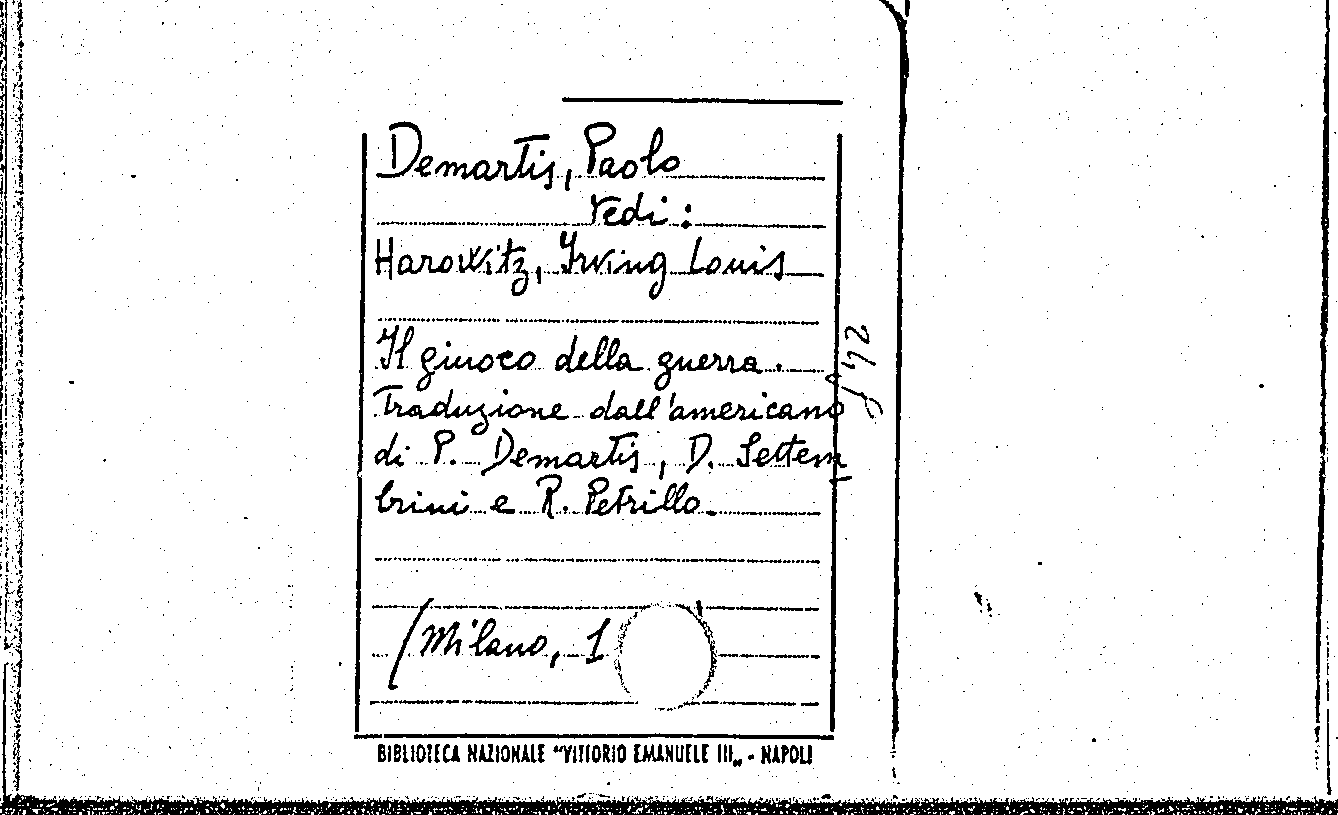 Demartis, Paolo
vedi:
Harowitz, Irving Louis
Il giuoco della guerra.
Traduzione dall'americano
di P. Demartis, D. Settem
brini e R. Petrillo.
/Milano, 1
BIBLIOTECA NAZIONALE "VITTORIO EMANUELE III„ - NAPOLI